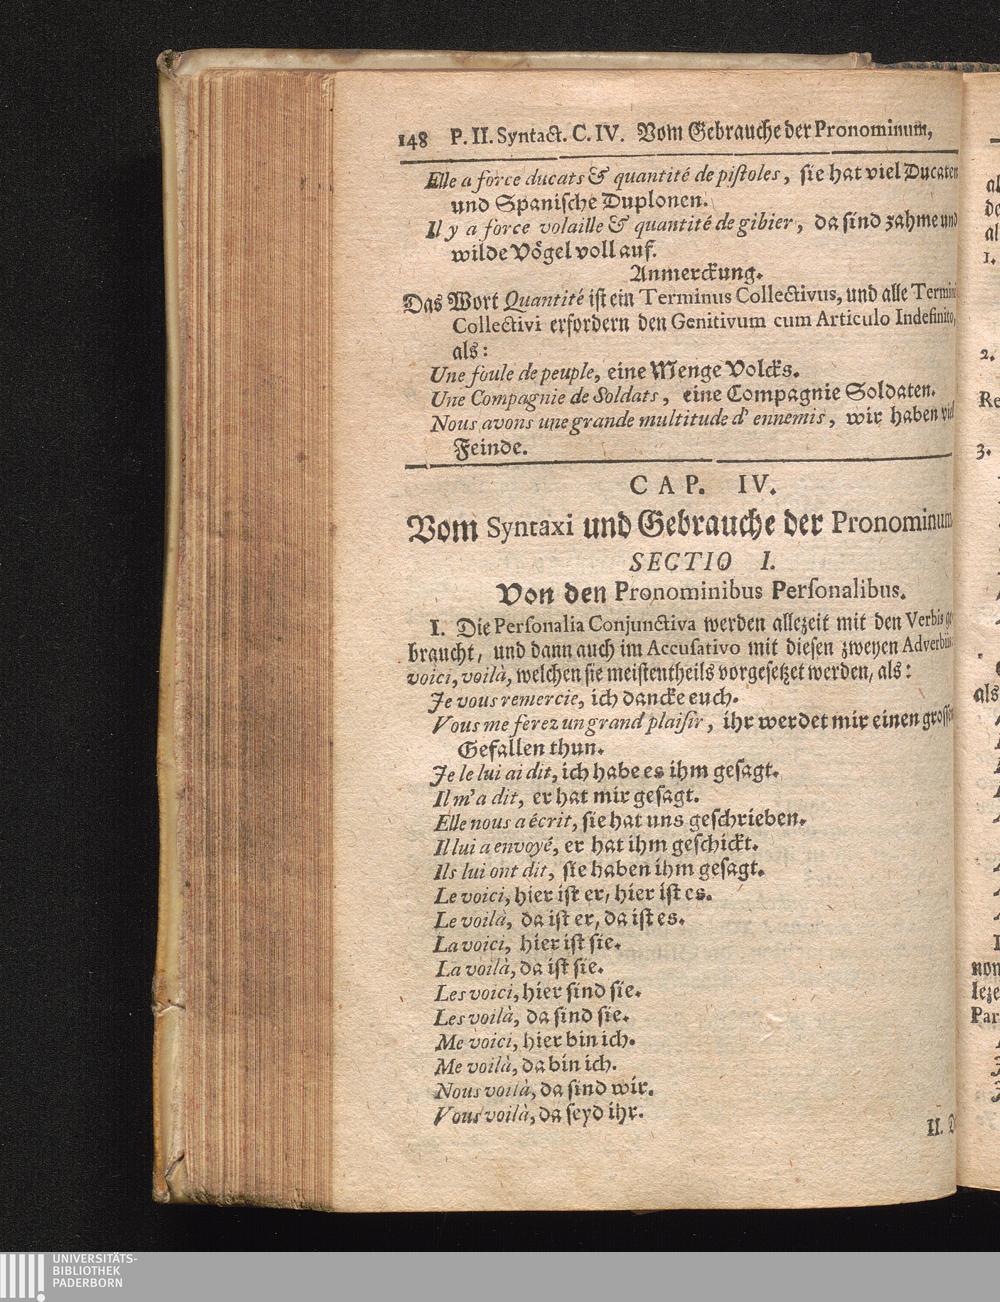 148 P. II. Syntact. C. IV. Vom Gebrauche der Pronominum,
Elle a force ducats & quantité de pistoles, sie hat viel Ducaten
und Spanische Duplonen.
Il y a force volaille & quantité de gibier, da sind zahme und
wilde Vögel voll auf.
Anmerckung.
Das Wort Quantité ist ein Terminus Collectivus, und alle Termini
Collectivi erfordern den Genitivum cum Articulo Indefinito,
als:
Une foule de peuple, eine Menge Volcks.
Une Compagnie de Soldats, eine Compagnie Soldaten.
Nous avons une grande multitude d' ennemis, wir haben viel
Feinde.
CAP. IV.
Vom Syntaxi und Gebrauche der Pronominum.
SECTIO I.
Von den Pronominibus Personalibus.
I. Die Personalia Conjunctiva werden allezeit mit den Verbis ge
braucht, und dann auch im Accusativo mit diesen zweyen Adverbiis:
voici, voilà, welchen sie meistentheils vorgesetzet werden, als:
Je vous remercie, ich dancke euch.
Vous me ferez un grand plaisir, ihr werdet mir einen grossen
Gefallen thun.
Je le lui ai dit, ich habe es ihm gesagt.
Il m'a dit, er hat mir gesagt.
Elle nous a écrit, sie hat uns geschrieben.
Il lui a envoyé, er hat ihm geschickt.
Ils lui ont dit, sie haben ihm gesagt.
Le voici, hier ist er, hier ist es.
Le voilà, da ist er, da ist es.
La voici, hier ist sie.
La voilà, da ist sie.
Les voici, hier sind sie.
Les voilà, da sind sie.
Me voici, hier bin ich.
Me voilà, da bin ich.
Nous voilà, da sind wir.
Vous voilà, da seyd ihr.
II.
al
1.
2.
Re
3.
als
non
leze
Par
UNIVERSITÄTS-
BIBLIOTHEK
PADERBORN